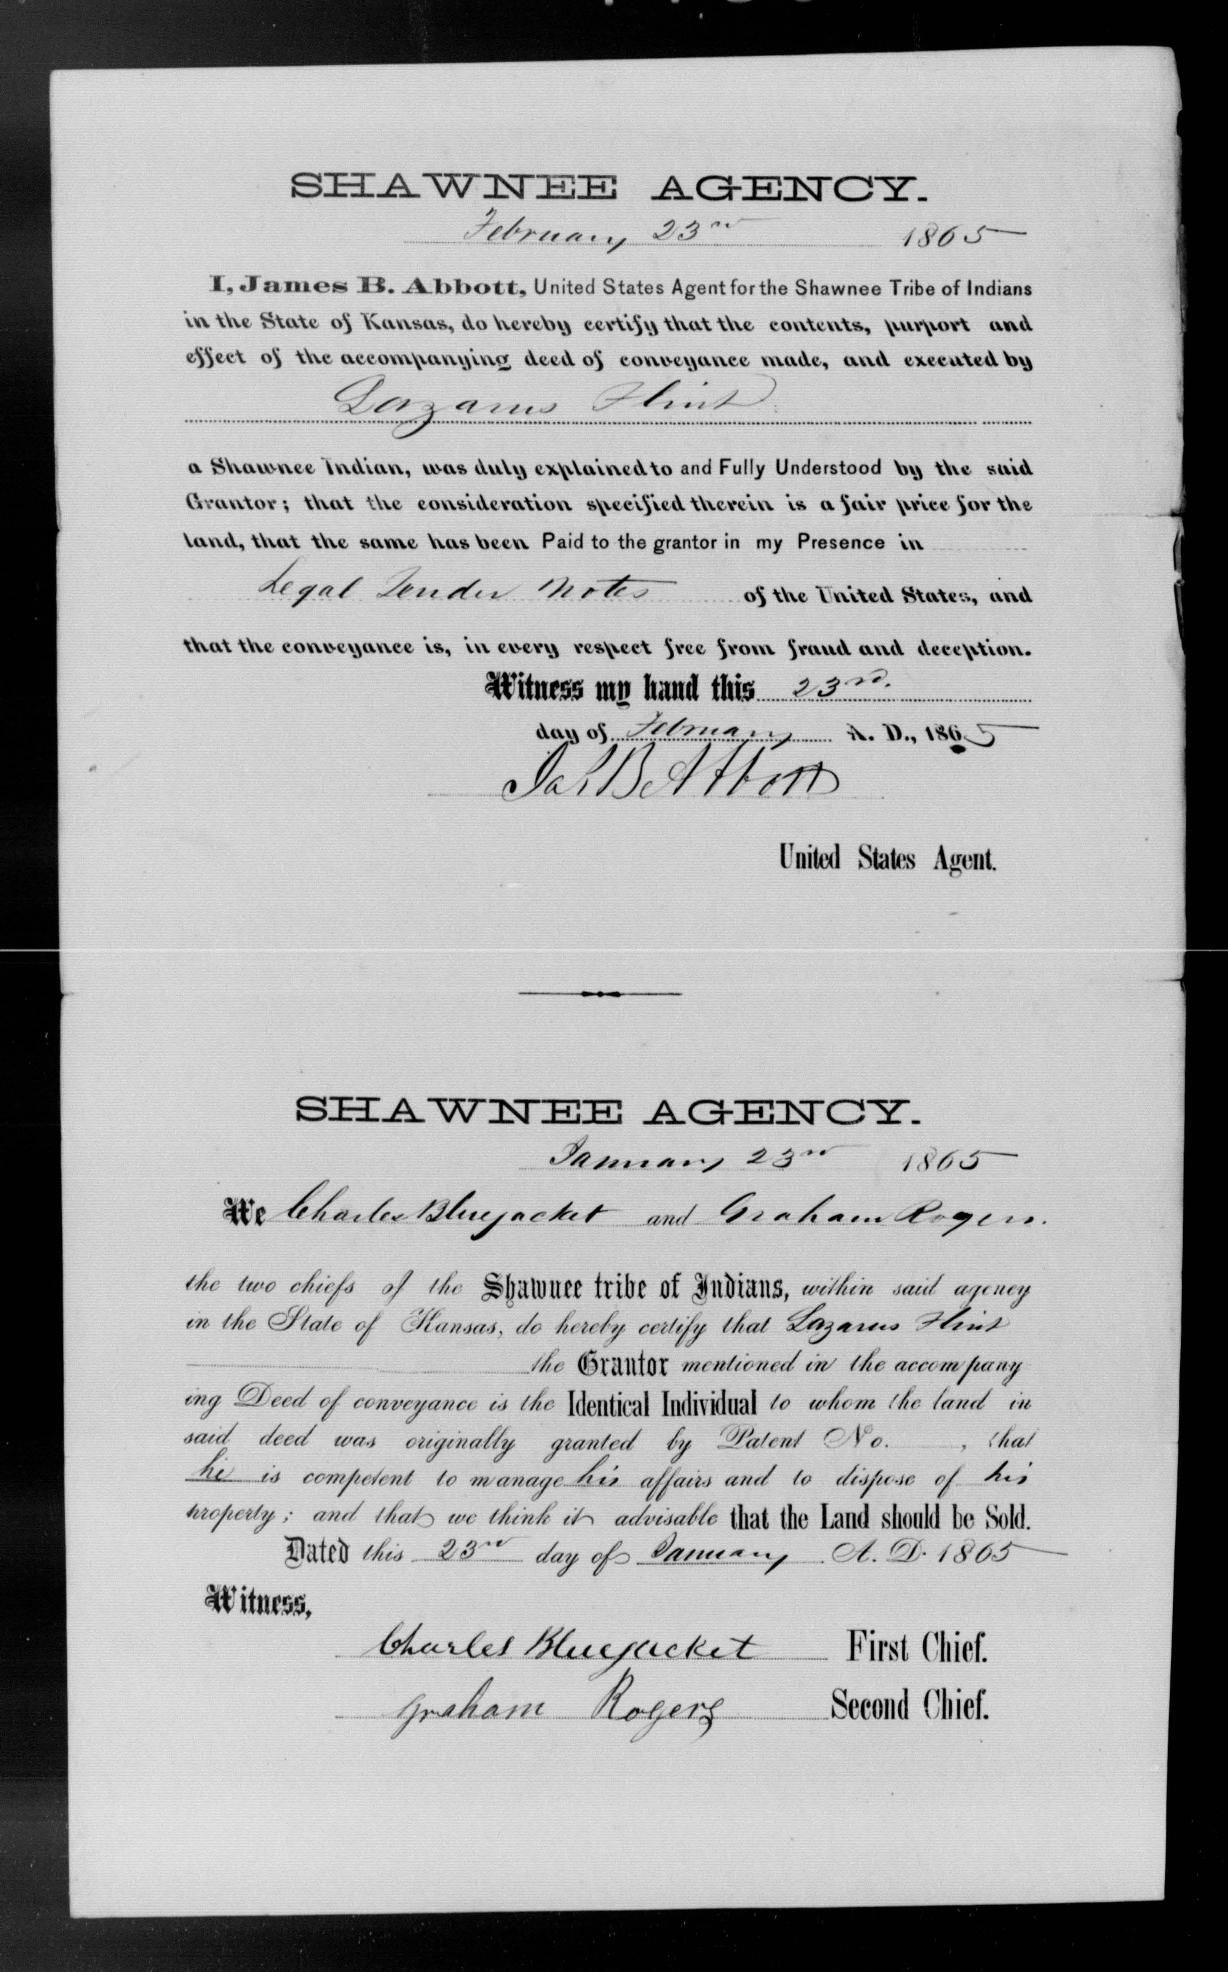 SHAWNEE AGENCY.
February 23rd 1865
I, James B. Abbott, United States Agent for the Shawnee Tribe of Indians
in the State of Kansas, do hereby certify that the contents, purport and
effect of the accompanying deed of conveyance made, and executed by
Lazarus Flint
a Shawnee Indian, was duly explained to and Fully Understood by the said
Grantor; that the consideration specified therein is a fair price for the
land, that the same has been Paid to the grantor in my Presence in
Legal Tender Notes of the United States, and
that the conveyance is, in every respect free from fraud and deception.
Witness my hand this 23rd.
day of February A. D., 1865
Jas B Abbott
United States Agent.
SHAWNEE AGENCY.
January 23rd 1865
We Charles Bluejacket and Graham Rogers.
the two chiefs of the Shawnee tribe of Indians, within said agency
in the State of Kansas, do hereby certify that Lazarus Flint
the Grantor mentioned in the accompany
ing Deed of conveyance is the Identical Individual to whom the land in
said deed was originally granted by Patent No. , that
he is competent to manage his affairs and to dispose of his
property; and that we think it advisable that the Land should be Sold.
Dated this 23rd day of January A. D. 1865
Witness,
Charles Bluejacket First Chief.
Graham Rogers Second Chief.